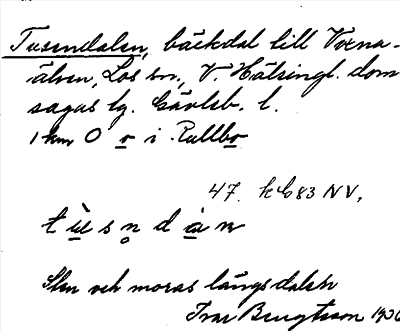 Tusendalen, bäckdal till Voxna-
älven, Los sn., V. Hälsingl. dom
sagas lg. Gävleb. l.
1 km O o i Rullbo
47. h 683 NV.
t ù s n d à n
Sten och moras längs dalen
Ivar Bengtsson 1930